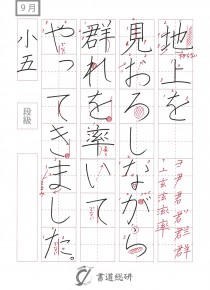 9月
地上を
見おろしながら
群れを率いて
やってきました。
小五
段級
ヨ尹君君'君"群
亠玄玄泫率
書道総研